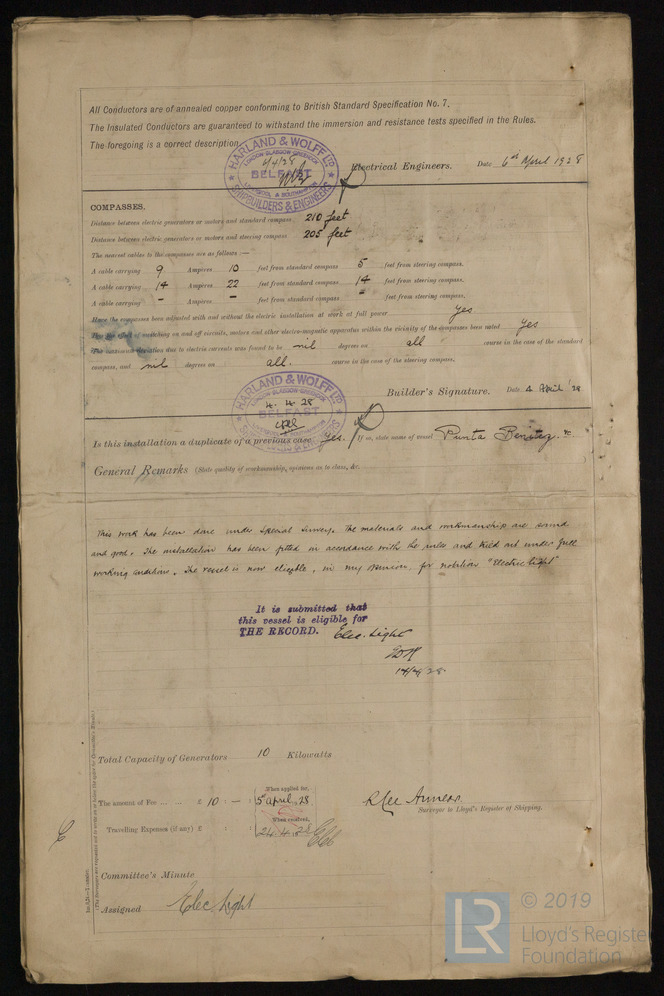 All Conductors are of annealed copper conforming to British Standard Specification No. 7.
The Insulated Conductors are guaranteed to withstand the immersion and resistance tests specified in the Rules.
The foregoing is a correct description.
HARLAND & WOLFF LTD
LONDON GLASGOW GREENOCK
4/4/28
BELFAST
LIVERPOOL & SOUTHAMPTON
SHIPBUILDERS & ENGINEERS
Electrical Engineers. Date 6th April 1928
COMPASSES.
Distance between electric generators or motors and standard compass 210 feet
Distance between electric generators or motors and steering compass 205 feet
The nearest cables to the compasses are as follows:—
A cable carrying 9 Amperes 10 feet from standard compass 5 feet from steering compass.
A cable carrying 14 Amperes 22 feet from standard compass 14 feet from steering compass.
A cable carrying – Amperes – feet from standard compass – feet from steering compass.
Have the compasses been adjusted with and without the electric installation at work at full power Yes
Has the effect of switching on and off circuits, motors and other electro-magnetic apparatus within the vicinity of the compasses been noted Yes
The maximum deviation due to electric currents was found to be nil degrees on all course in the case of the standard
compass, and nil degrees on all. course in the case of the steering compass.
HARLAND & WOLFF LTD
LONDON GLASGOW GREENOCK
4.4.28
BELFAST
Builder's Signature. Date 4 April '28
Is this installation a duplicate of a previous case Yes. If so, state name of vessel Punta Benitez &c
General Remarks (State quality of workmanship, opinions as to class, &c.
This work has been done under Special Survey. The materials and workmanship are sound
and good. The installation has been fitted in accordance with the rules and tried out under full
working condition. The vessel is now eligible, in my opinion, for notation "Electric light"
It is submitted that
this vessel is eligible for
THE RECORD. Elec. Light
Total Capacity of Generators 10 Kilowatts
The amount of Fee ... ... £ 10 : — : When applied for, 5th April 1928
Travelling Expenses (if any) £ : : When received, 24.4.28
Surveyor to Lloyd's Register of Shipping.
Committee's Minute
Assigned Elec. Light
LR
© 2019
Lloyd's Register
Foundation